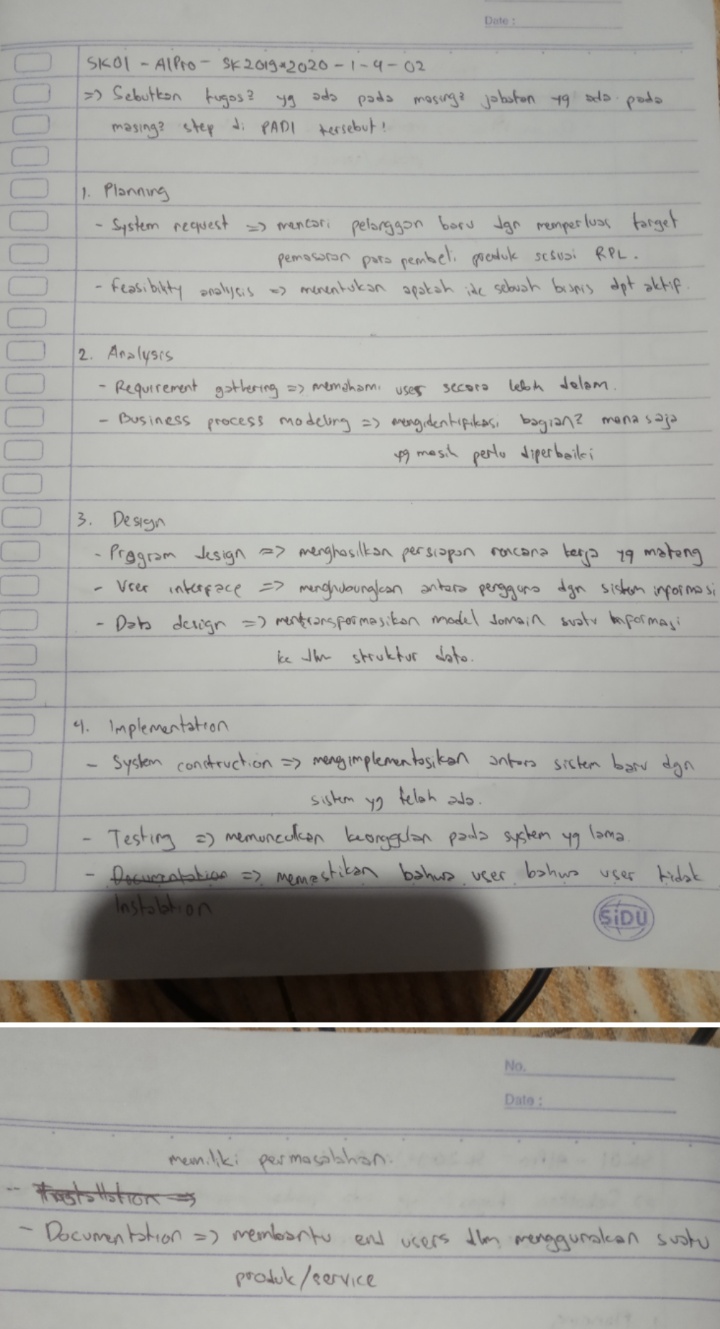 Date :
SK01 - AlPro - SK2019*2020 - 1 - 4 - 02
=> Sebutkan tugas2 yg ada pada masing2 jabatan yg ada pada
masing2 step di PADI tersebut!
1. Planning
- System request => mencari pelanggan baru dgn memperluas target
pemasaran para pembeli produk sesuai RPL.
- Feasibility analysis => menentukan apakah ide sebuah bisnis dpt aktif.
2. Analysis
- Requirement gathering => memahami user secara lebih dalam.
- Business process modeling => mengidentifikasi bagian2 mana saja
yg masih perlu diperbaiki
3. Design
- Program design => menghasilkan persiapan rencana kerja yg matang
- User interface => menghubungkan antara pengguna dgn sistem informasi
- Data design => mentransformasikan model domain suatu informasi
ke dlm struktur data.
4. Implementation
- System construction => mengimplementasikan antara sistem baru dgn
sistem yg telah ada.
- Testing => memunculkan keanggulan pada system yg lama
- Documentation => memastikan bahwa user bahwa user tidak
Instalation
SiDU
No.
Date :
memiliki permasalahan.
- Installation =>
- Documentation => membantu end users dlm menggunakan suatu
produk/service